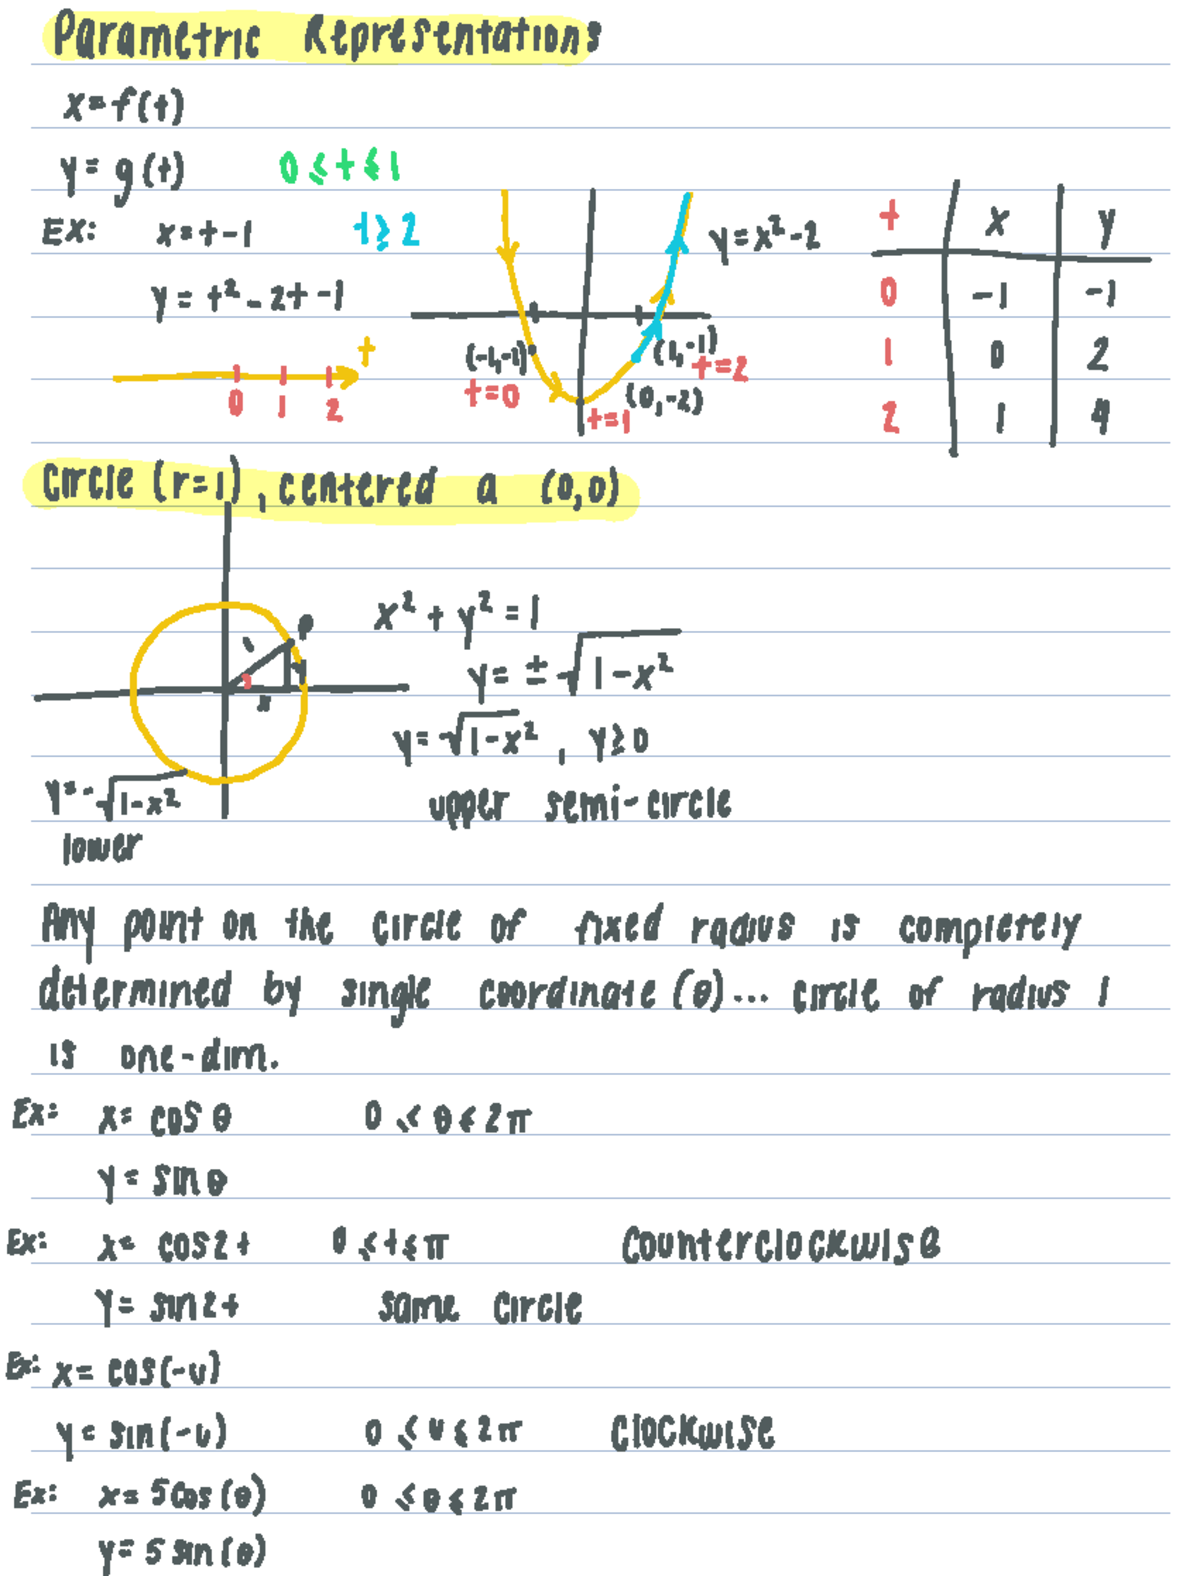 Parametric Representations
x=f(t)
y=g(t) 0≤t≤1
EX: x=t-1 t≥2
y=t²-2t-1
t
0 1 2
y=x²-2
(-1,-1) (1,-1)
t=0 t=2
(0,-2)
t=1
t x y
0 -1 -1
1 0 2
2 1 4
Circle (r=1), centered a (0,0)
P
1
y
x
x²+y²=1
y=±√1-x²
y=√1-x², y≥0
upper semi-circle
y=-√1-x²
lower
Any point on the circle of fixed radius is completely
determined by single coordinate (θ)... circle of radius 1
is one-dim.
Ex: x= cos θ 0≤θ≤2π
y= sin θ
Ex: x= cos2t 0≤t≤π Counterclockwise
y= sin2t same circle
Ex: x= cos(-u)
y= sin(-u) 0≤u≤2π Clockwise
Ex: x= 5cos(θ) 0≤θ≤2π
y= 5 sin(θ)